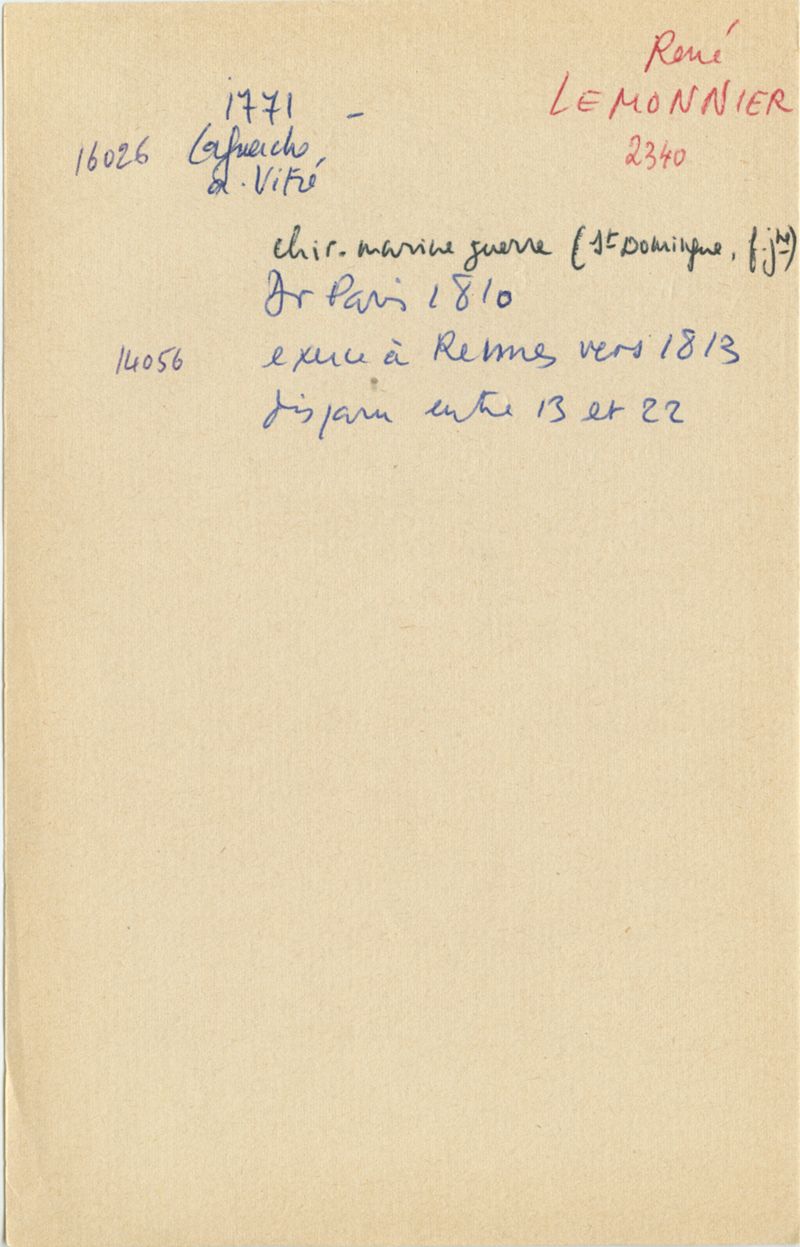 René
LEMONNIER
2340
1771 -
16026
a. Vitré
chir. marine guerre (St Domingue, f. jne)
Dr Paris 1810
14056 exerce à Rennes vers 1813
disparu entre 13 et 22